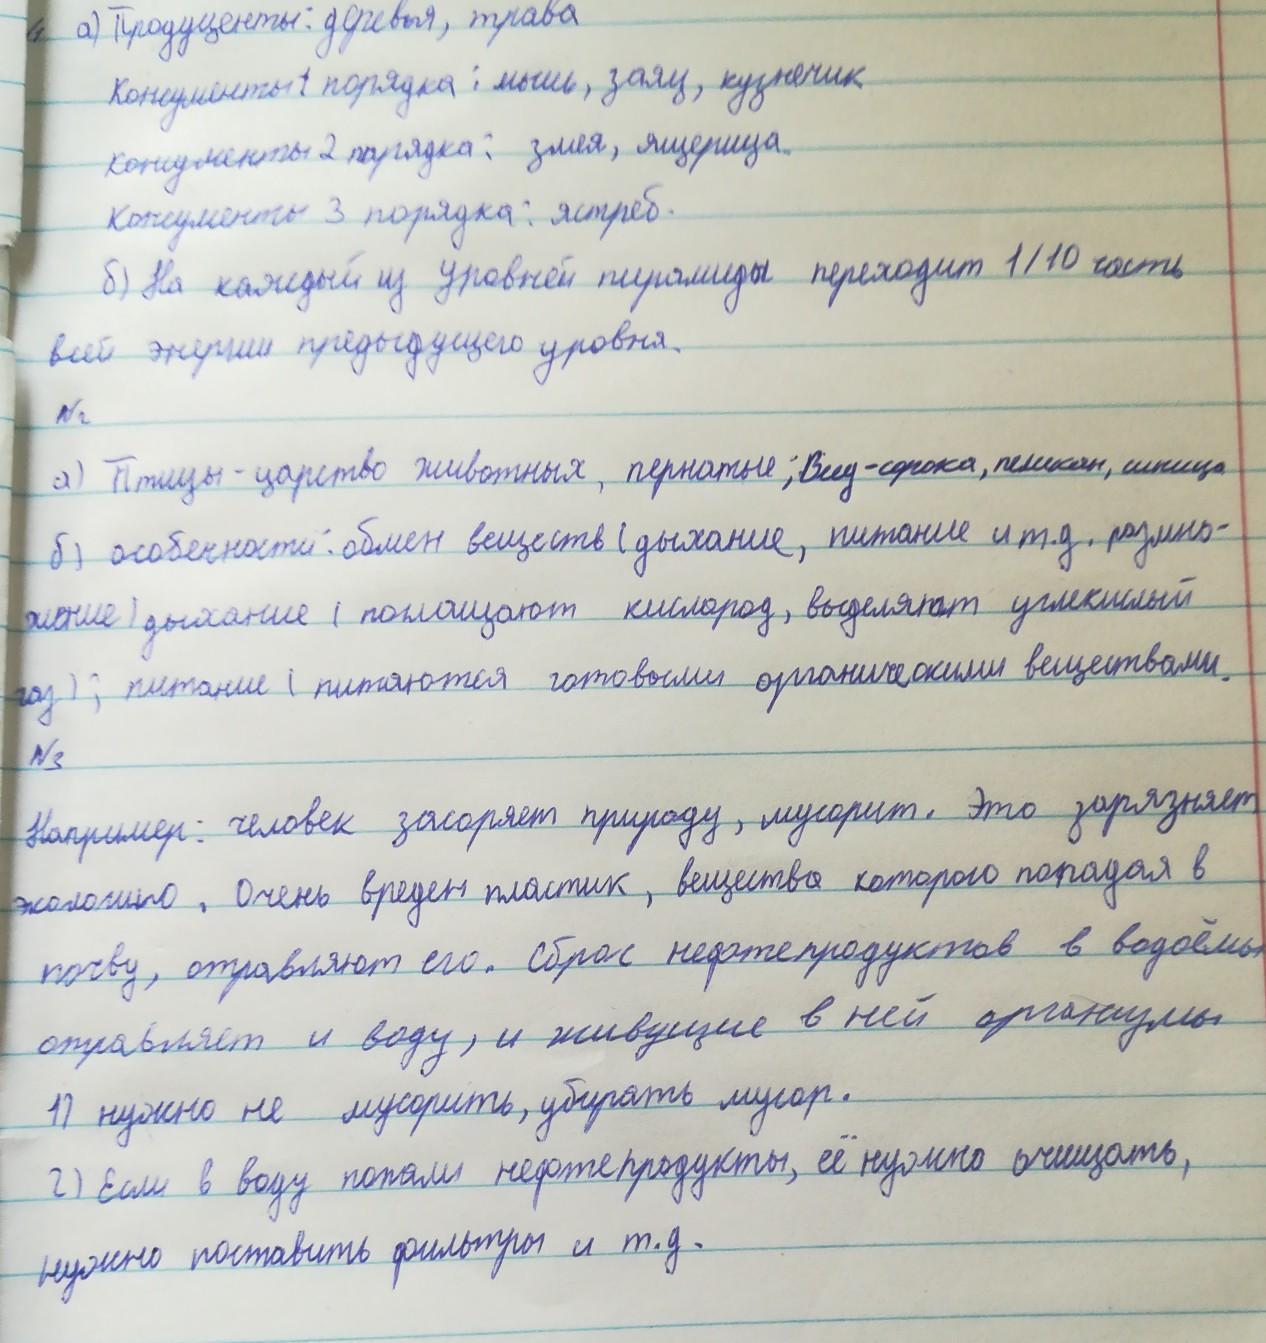 а) Продуценты: деревья, трава
Консументы 1 порядка: мышь, заяц, кузнечик
консументы 2 порядка: змея, ящерица.
Консументы 3 порядка: ястреб.
б) На каждый из уровней пирамиды переходит 1/10 часть
всей энергии предыдущего уровня.
№2
а) Птицы - царство животных, пернатые; Вид - сорока, пеликан, синица
б) особенности: обмен веществ (дыхание, питание и т.д. размно-
жение) дыхание (поглощают кислород, выделяют углекислый
газ); питание (питаются готовыми органическими веществами.
№3
Например: человек засоряет природу, мусорит. Это загрязняет
экологию. Очень вреден пластик, вещества которого попадая в
почву, отравляют его. Сброс нефтепродуктов в водоёмы
отравляет и воду, и живущие в ней организмы
1) нужно не мусорить, убирать мусор.
2) Если в воду попали нефтепродукты, её нужно очищать,
нужно поставить фильтры и т.д.